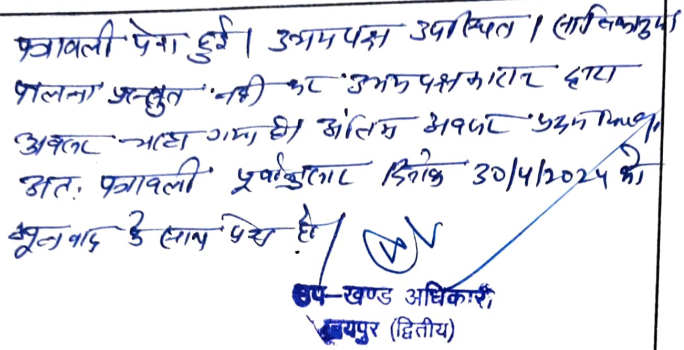 पत्रावली पेश हुई। उभयपक्ष उपस्थित।
पालना प्रस्तुत नहीं कर उभयपक्षकारान द्वारा
अवसर चाहा गया है। अंतिम अवसर प्रदान किया
अतः पत्रावली पूर्वानुसार दिनांक 30/4/2024 को
मूल वाद के साथ पेश हो।
उप-खण्ड अधिकारी,
जयपुर (द्वितीय)